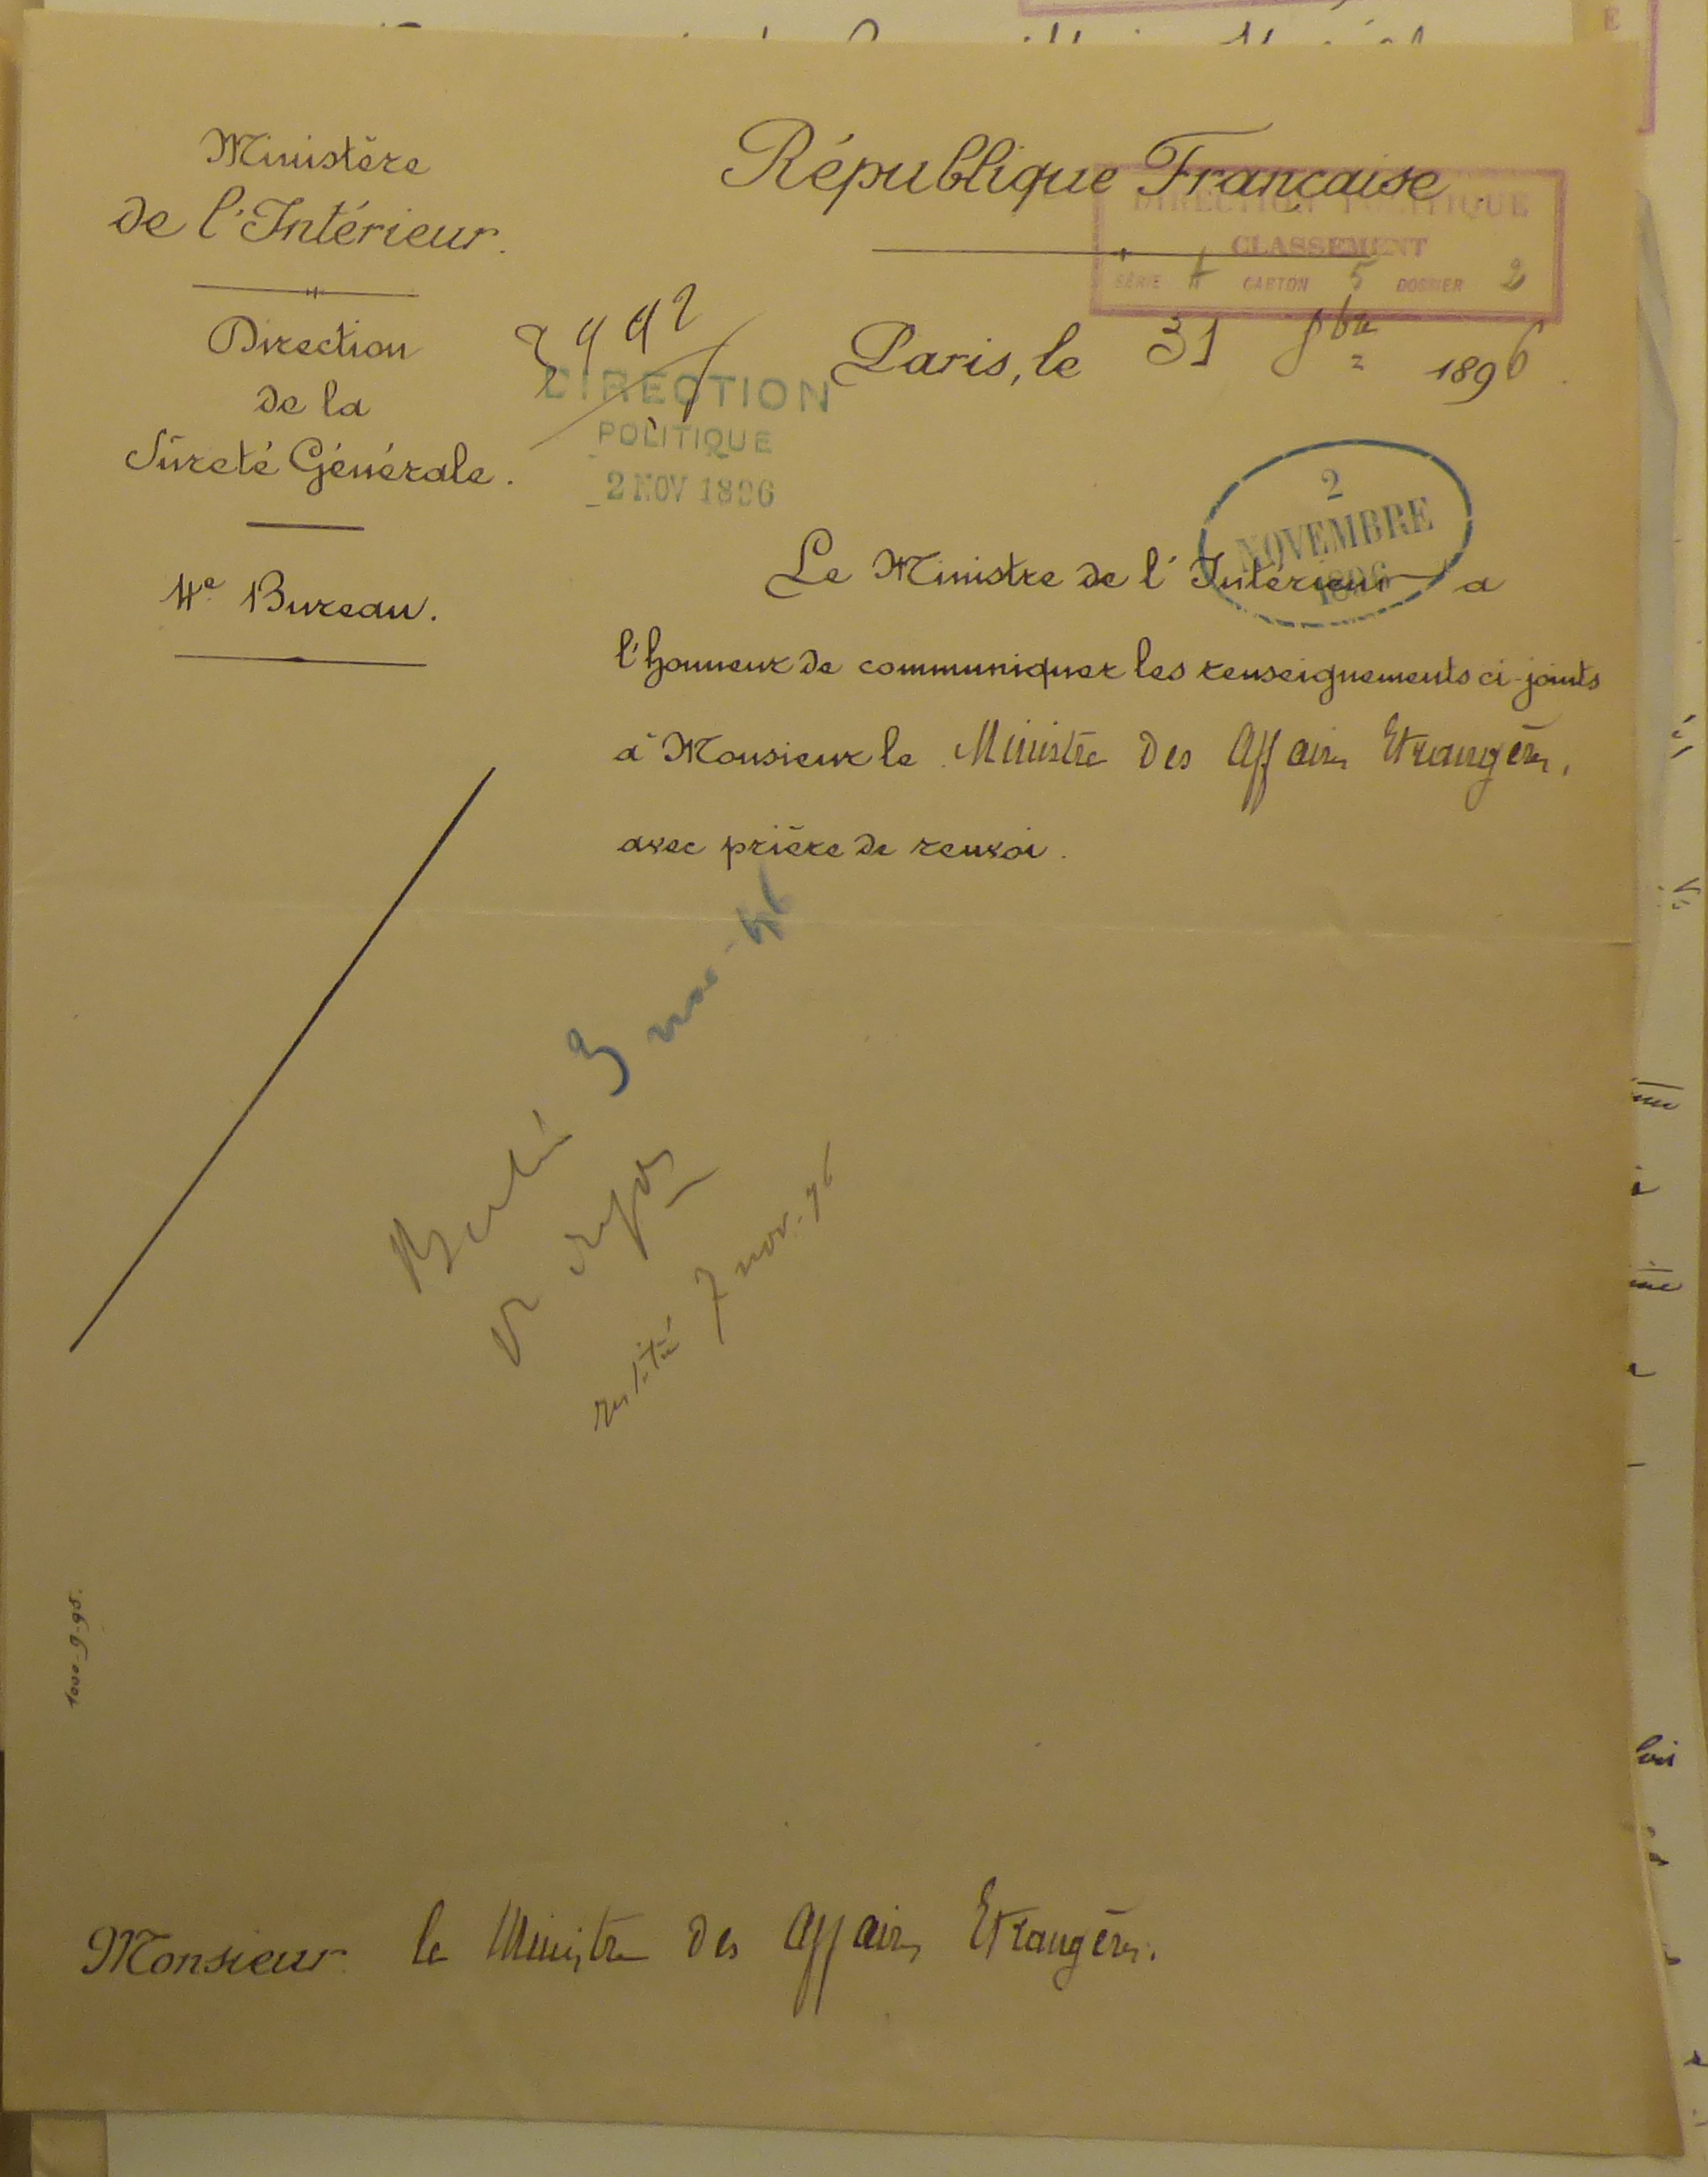 Ministère
de l'Intérieur.
Direction
de la
Sûreté Générale.
4e Bureau.
République Française
DIRECTION POLITIQUE
CLASSEMENT
SÉRIE A CARTON 5 DOSSIER 2
Paris, le 31 8bre 1896.
DIRECTION
POLITIQUE
2 NOV 1896
2
NOVEMBRE
1896
Le Ministre de l'Intérieur a
l'honneur de communiquer les renseignements ci-joints
à Monsieur le Ministre des Affaires Etrangères,
avec prière de renvoi.
Berlin 3 nov. 96
restitué 7 nov. 96
1000-9-98.
Monsieur le Ministre des Affaires Etrangères.